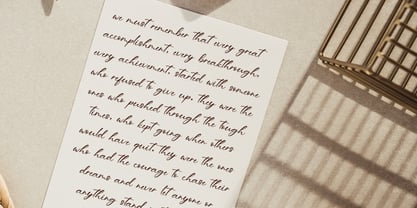 we must remember that every great
accomplishment, every breakthrough,
every achievement, started with someone
who refused to give up. they were the
ones who pushed through the tough
times, who kept going when others
would have quit. they were the ones
who had the courage to chase their
dreams and never let anyone or
anything stand